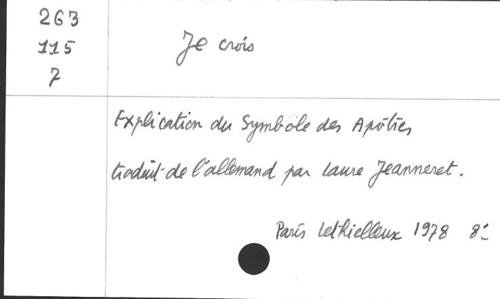 263
115
7
Je crois
Explication du Symbole des Apôtres
traduit de l'allemand par Laure Jeanneret.
Paris Lethielleux 1978 8°